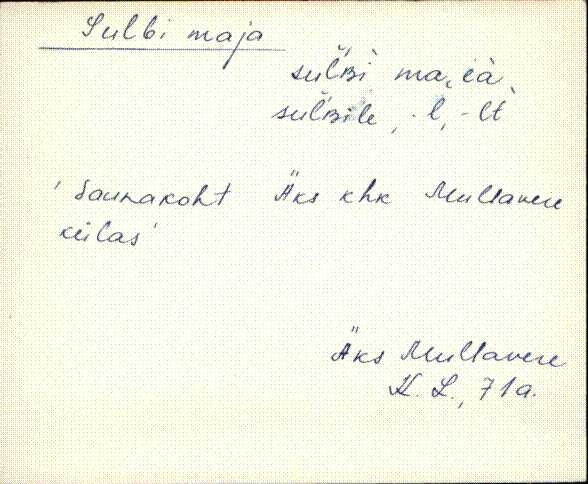 Sulbi maja
sulʙì majà
sulʙile, -l, -lt
'saunakoht Äks khk Mullavere
külas'
Äks Mullavere
K. L., 71a.